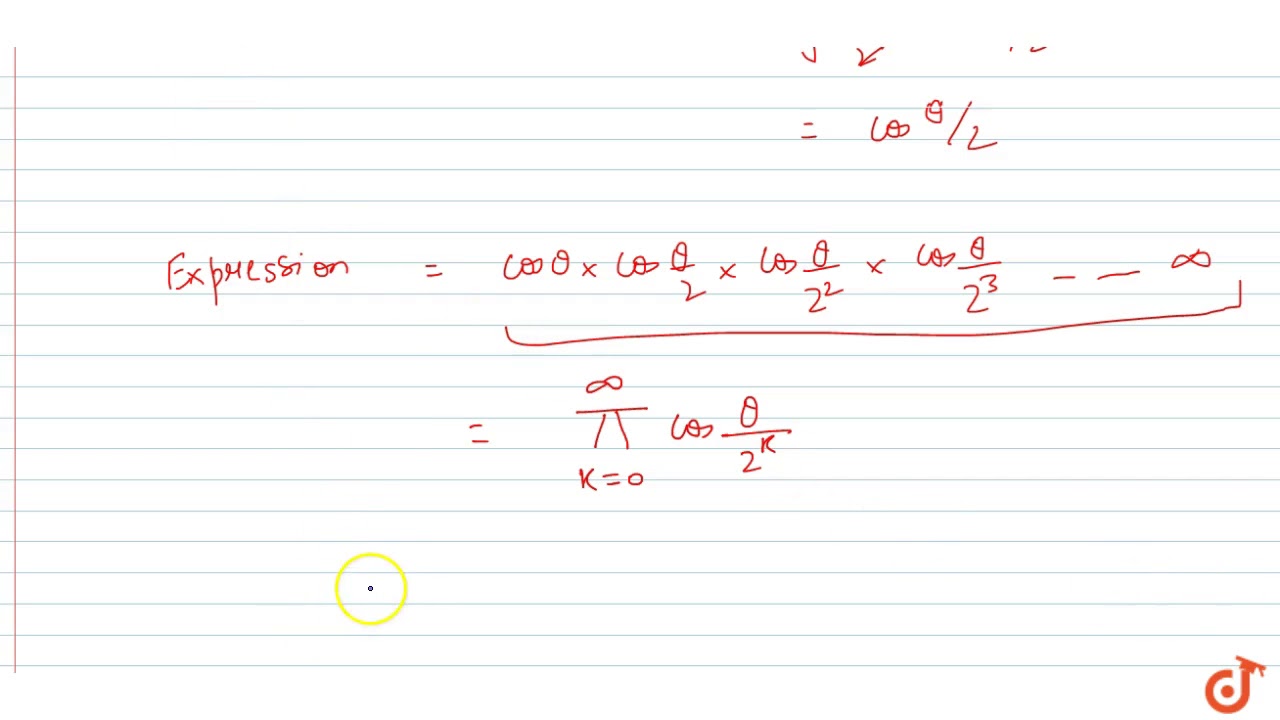 = cos θ/2
Expression = cosθ × cos θ/2 × cos θ/2² × cos θ/2³ – – ∞
= ∞ π K=0 cos θ/2ᴷ